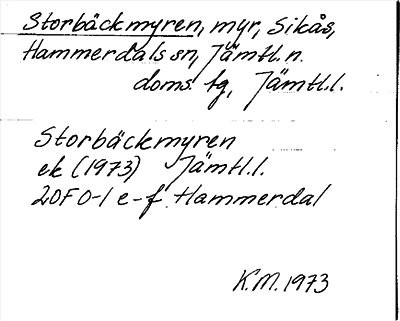 Storbäckmyren, myr, Sikås,
Hammerdals sn, Jämtl. n.
doms. tg, Jämtl.l.
Storbäckmyren
ek (1973) Jämtl.l.
20F 0-1 e-f Hammerdal
K.M. 1973